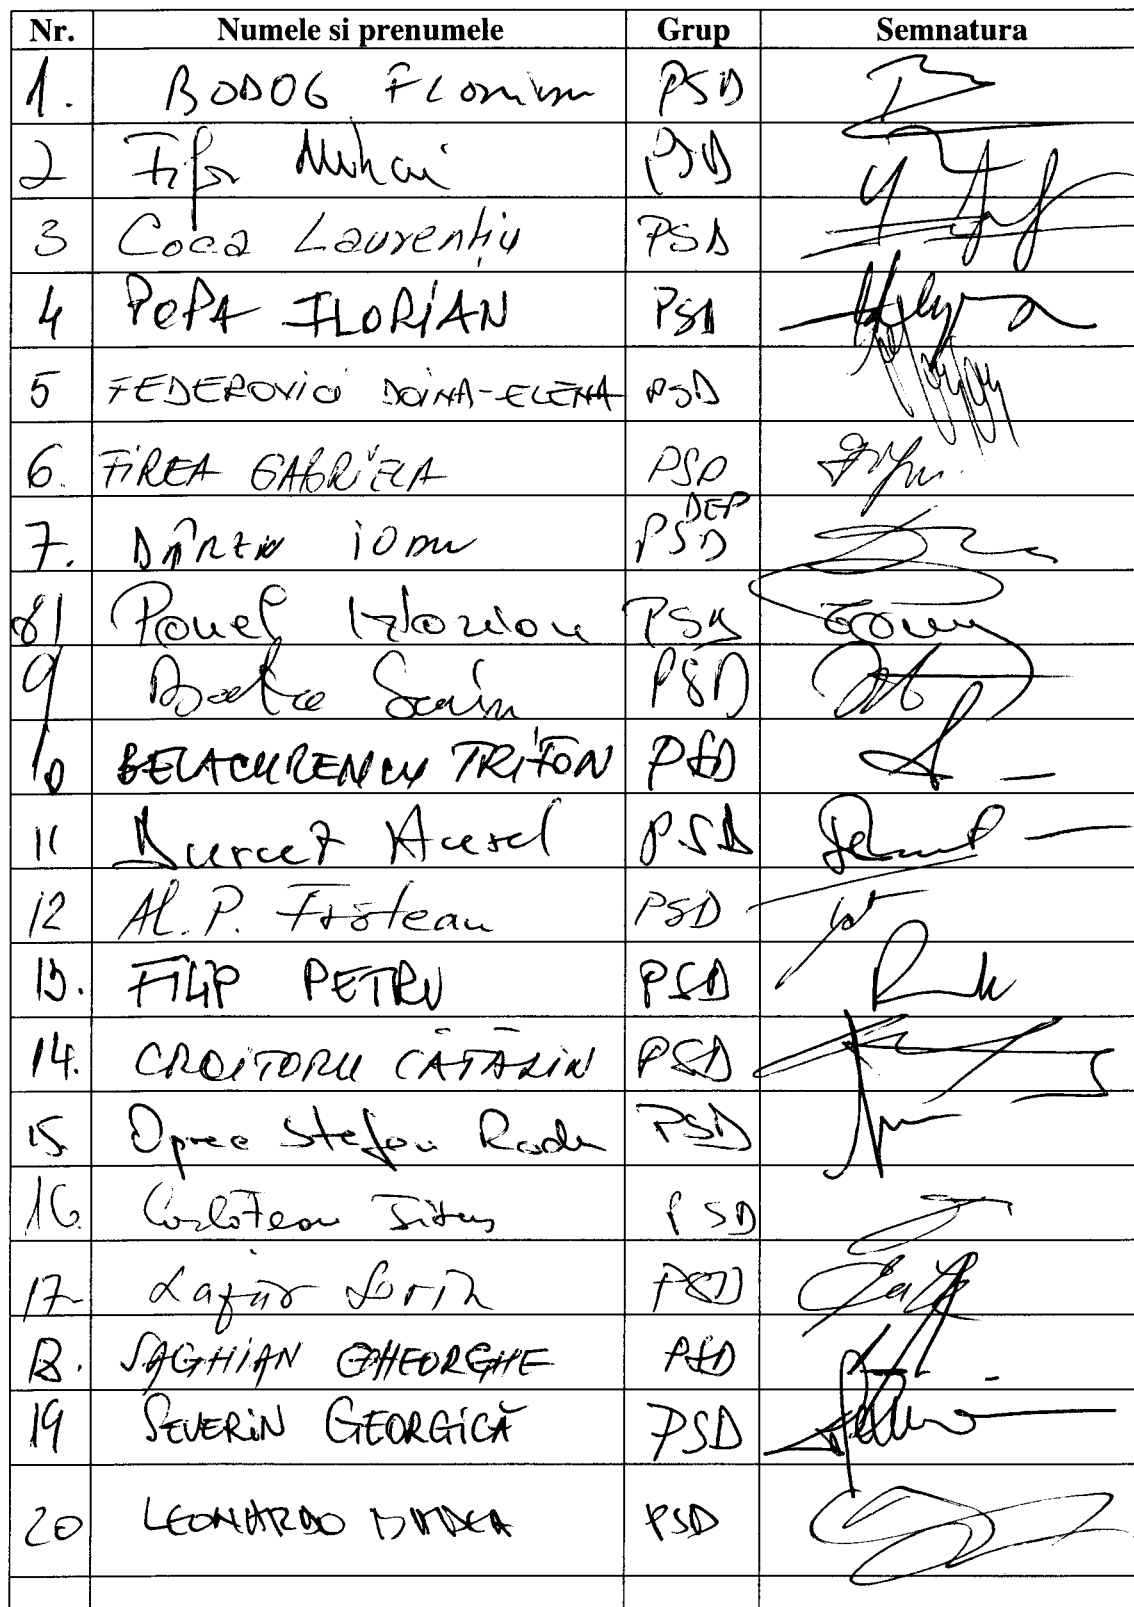 Nr. Numele si prenumele Grup Semnatura
1. BODOG Florian PSD
2 Fifor Mihai PSD
3 Coca Laurențiu PSD
4 POPA FLORIAN PSD
5 FEDEROVICI DOINA-ELENA PSD
6. FIREA GABRIELA PSD
DEP
7. PSD
81 Pavel Marian PSD
9 Sorin PSD
10 BELACURENCU TRIFON PSD
11 Durcet Aurel PSD
12 Al. P. Frăteanu PSD
13. FILIP PETRU PSD
14. CROITORU CĂTĂLIN PSD
15. Oprea Stefan Radu PSD
16. Corlățean Titus PSD
17 Lazăr Sorin PSD
18. SAGHIAN GHEORGHE PSD
19 SEVERIN GEORGICĂ PSD
20 LEONARDO BADEA PSD